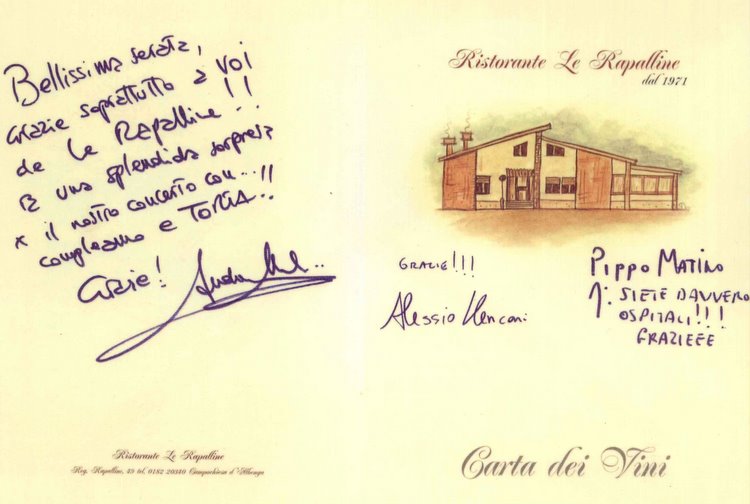 Bellissima serata,
Grazie soprattutto a voi
de Le Rapalline!!
È una splendida sorpresa
x il nostro concerto con...
compleanno e TORTA!!
Grazie!
Ristorante Le Rapalline
Reg. Rapalline, 49 tel. 0182 20340 Campochiesa d'Albenga
Ristorante Le Rapalline
dal 1971
GRAZIE!!!
Alessio Menconi
PIPPO MATINO
SIETE DAVVERO
OSPITALI!!!
GRAZIEEE
Carta dei Vini